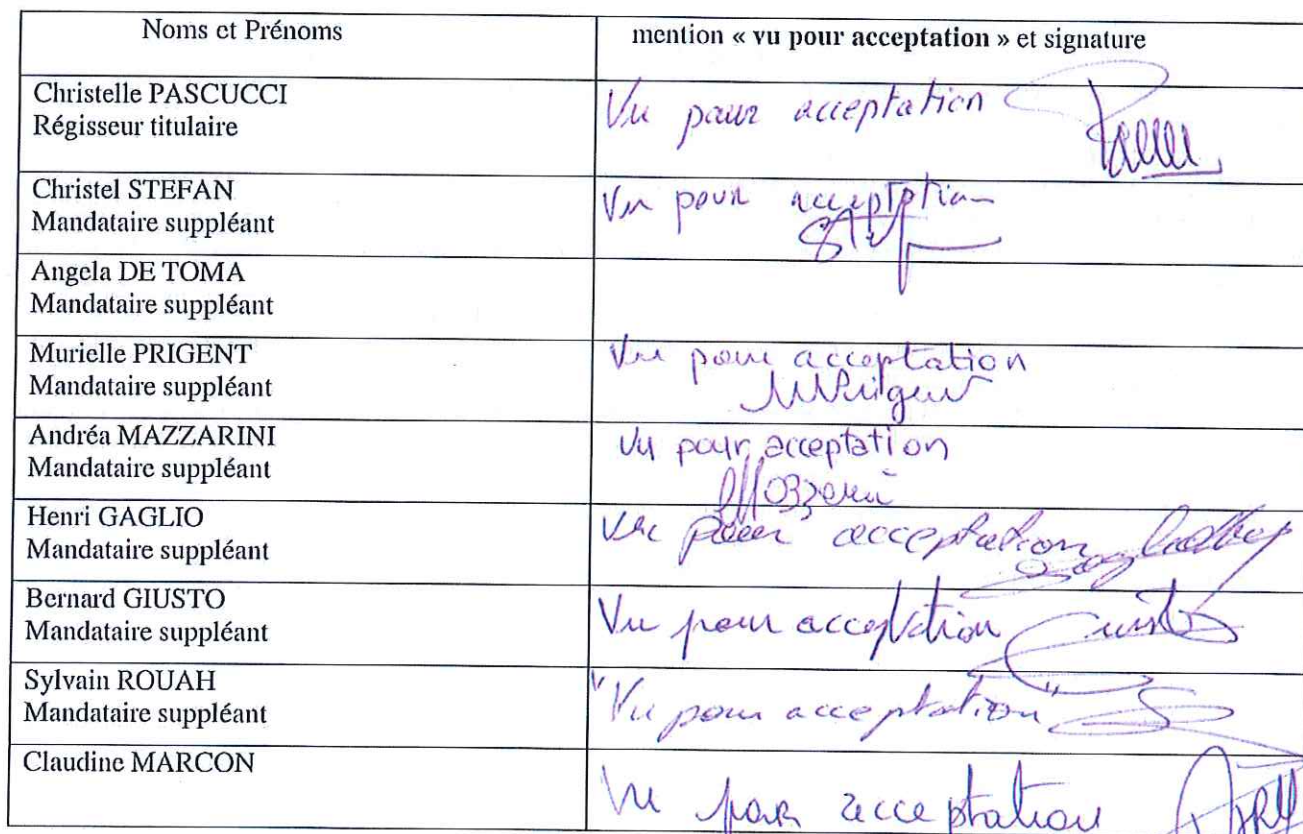 Noms et Prénoms
mention « vu pour acceptation » et signature
Christelle PASCUCCI
Régisseur titulaire
Vu pour acceptation
Christel STEFAN
Mandataire suppléant
Vu pour acceptption
Angela DE TOMA
Mandataire suppléant
Murielle PRIGENT
Mandataire suppléant
Vu pour acceptation
MPrigent
Andréa MAZZARINI
Mandataire suppléant
Vu pour acceptation
Henri GAGLIO
Mandataire suppléant
Vu pour acceptation
Bernard GIUSTO
Mandataire suppléant
Vu pour acceptation
Sylvain ROUAH
Mandataire suppléant
"Vu pour acceptation"
Claudine MARCON
Vu pour acceptation